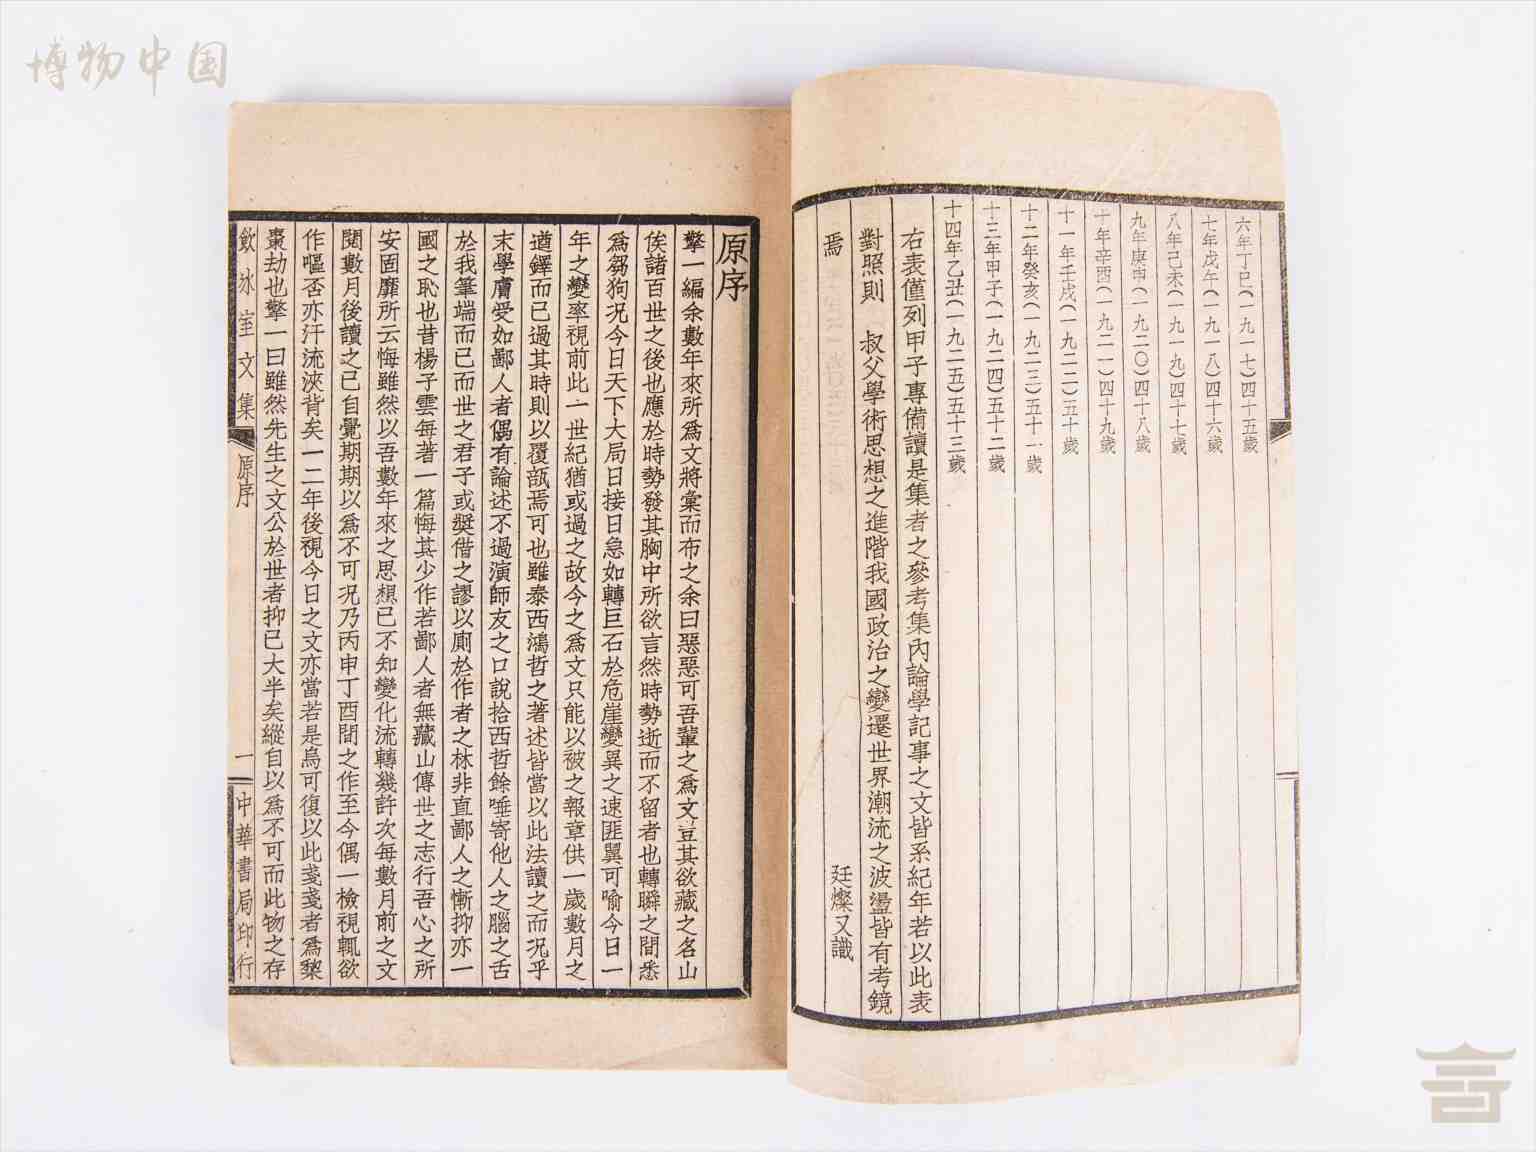 博物中国
六年丁巳(一九一七)四十五歲
七年戊午(一九一八)四十六歲
八年己未(一九一九)四十七歲
九年庚申(一九二〇)四十八歲
十年辛酉(一九二一)四十九歲
十一年壬戌(一九二二)五十歲
十二年癸亥(一九二三)五十一歲
十三年甲子(一九二四)五十二歲
十四年乙丑(一九二五)五十三歲
右表僅列甲子專備讀是集者之參考集內論學記事之文皆系紀年若以此表
對照則 叔父學術思想之進階我國政治之變遷世界潮流之波盪皆有考鏡
焉 廷燦又識
原序
擎一編余數年來所爲文將彙而布之余曰惡惡可吾輩之爲文豈其欲藏之名山
俟諸百世之後也應於時勢發其胸中所欲言然時勢逝而不留者也轉瞬之間悉
爲芻狗况今日天下大局日接日急如轉巨石於危崖變異之速匪翼可喻今日一
年之變率視前此一世紀猶或過之故今之爲文只能以被之報章供一歲數月之
遒鐸而已過其時則以覆瓿焉可也雖泰西鴻哲之著述皆當以此法讀之而况乎
末學膚受如鄙人者偶有論述不過演師友之口說拾西哲餘唾寄他人之腦之舌
於我筆端而已而世之君子或奬借之謬以廁於作者之林非直鄙人之慚抑亦一
國之恥也昔楊子雲每著一篇悔其少作若鄙人者無藏山傳世之志行吾心之所
安固靡所云悔雖然以吾數年來之思想已不知變化流轉幾許次每數月前之文
閱數月後讀之已自覺期期以爲不可况乃丙申丁酉間之作至今偶一檢視輒欲
作嘔否亦汗流浹背矣一二年後視今日之文亦當若是烏可復以此戔戔者爲棃
棗劫也擎一曰雖然先生之文公於世者抑已大半矣縱自以爲不可而此物之存
飲冰室文集 原序 一 中華書局印行